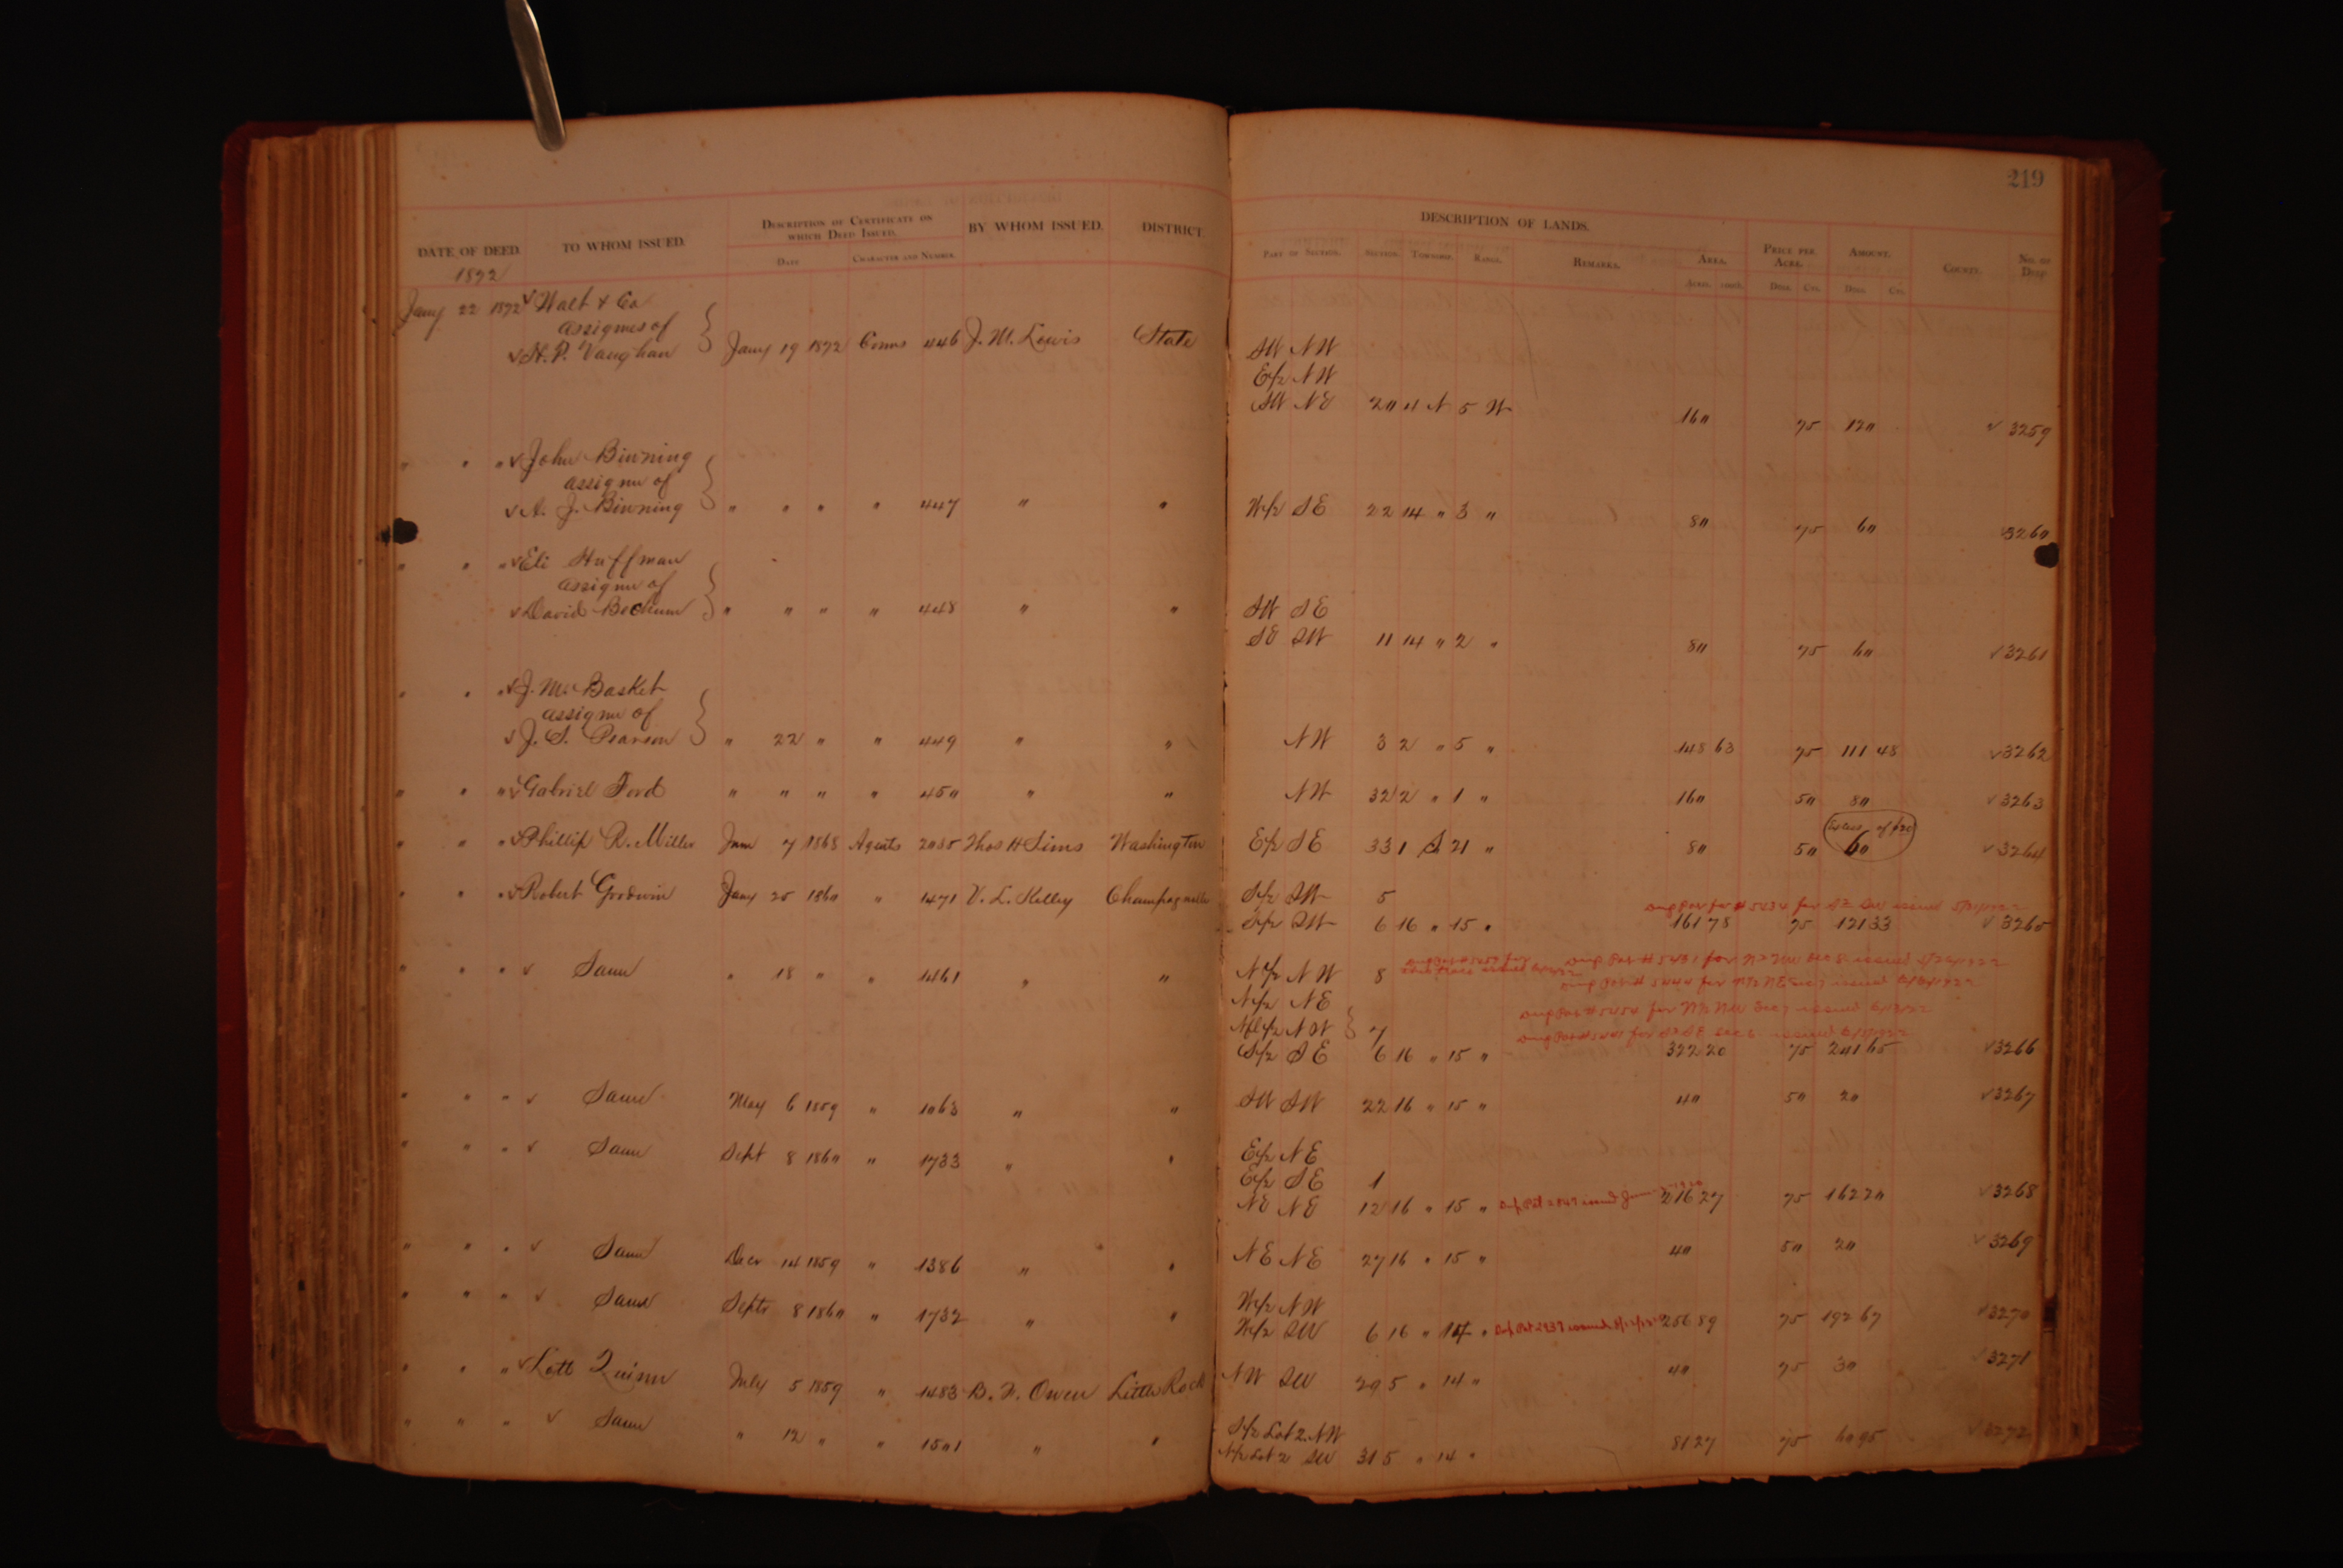 219
DATE OF DEED. TO WHOM ISSUED. DESCRIPTION OF CERTIFICATE ON WHICH DEED ISSUED. BY WHOM ISSUED. DISTRICT. DESCRIPTION OF LANDS. PRICE PER ACRE. AMOUNT. COUNTY. NO. OF DEED
DATE CHARACTER AND NUMBER. PART OF SECTION. SECTION. TOWNSHIP. RANGE. REMARKS. AREA.
ACRES. DOLS. CTS. DOLS. CTS.
1872
Jany 22 1872 Walt & Co
assignees of
H. P. Vaughan Jany 19 1872 Comrs 446 J. M. Lewis State SW NW
E/2 NW
SW NE 20 4 N 5 W 160 75 120 3259
" " " John Binning
assignee of
A. J. Binning " " " " 447 " " W/2 SE 22 14 " 3 " 80 75 60 3260
" " " Eli Huffman
assignee of
David " " " " 448 " " SW SE
SE SW 11 14 " 2 " 80 75 60 3261
" " " J. Mc Basket
assignee of
J. S. Pearson " 22 " " 449 " " NW 3 2 " 5 " 148 63 75 111 48 3262
" " " Gabriel Ford " " " " 450 " " NW 32 2 " 1 " 160 50 80 3263
" " " Phillip R. Miller 7 1868 Agents 2035 Thos H Sims Washington E/2 SE 33 1 S 21 " 80 50 60 of $20 3264
" " " Robert Goodwin Jany 25 1860 " 1471 V. L. Kelley Champagnolle S/2 SW 5
S/2 SW 6 16 " 15 " 161 78 75 121 33 3265
" " " Same " 18 " " 1461 " " N/2 NW 8
N/2 NE
Nfl/2 NW 7
S/2 SE 6 16 " 15 " 322 20 75 241 65 3266
" " " Same May 6 1859 " 1063 " " SW SW 22 16 " 15 " 40 50 20 3267
" " " Same Sept 8 1860 " 1733 " " E/2 NE
E/2 SE 1
NE NE 12 16 " 15 " 216 27 75 162 20 3268
" " " Same Decr 14 1859 " 1386 " " NE NE 27 16 " 15 " 40 50 20 3269
" " " Same Septr 8 1860 " 1732 " " W/2 NW
W/2 SW 6 16 " 14 " 256 89 75 192 67 3270
" " " Lott Quinn July 5 1859 " 1483 B. F. Owen Little Rock NW SW 29 5 " 14 " 40 75 30 3271
" " " Same " 12 " " 1501 " " S/2 Lot 2 NW
N/2 Lot 2 SW 31 5 " 14 " 81 27 75 60 95 3272